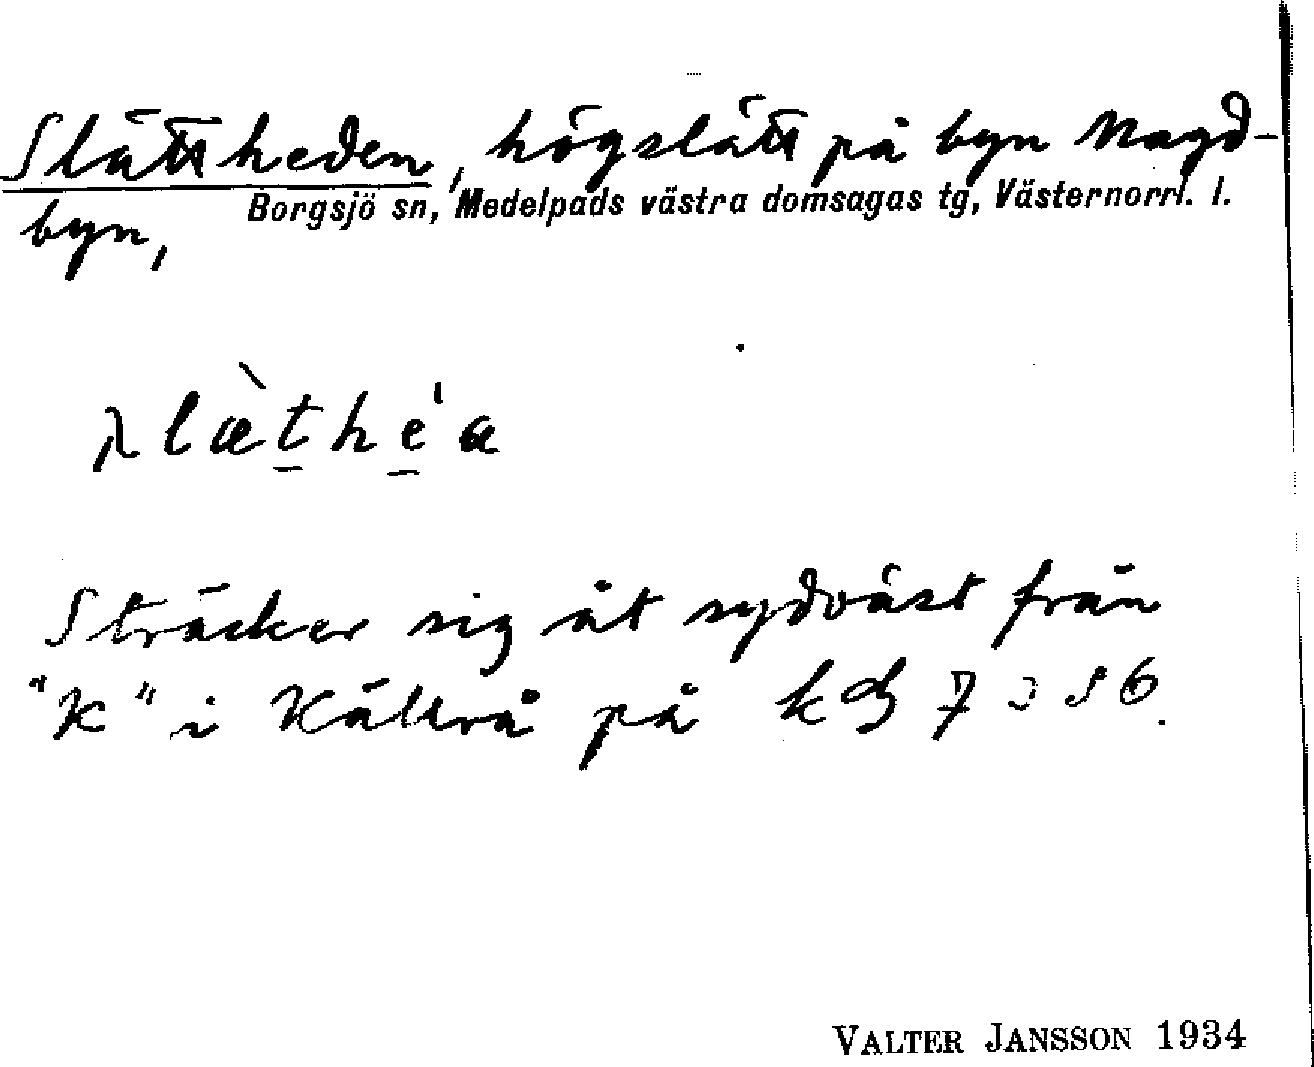 Slättheden, högslätt på byn Nagd-
byn, Borgsjö sn, Medelpads västra domsagas tg, Västernorrl. l.
slæ̀the̍a
Sträcker sig åt sydväst från
"K" i Källrå på
VALTER JANSSON 1934